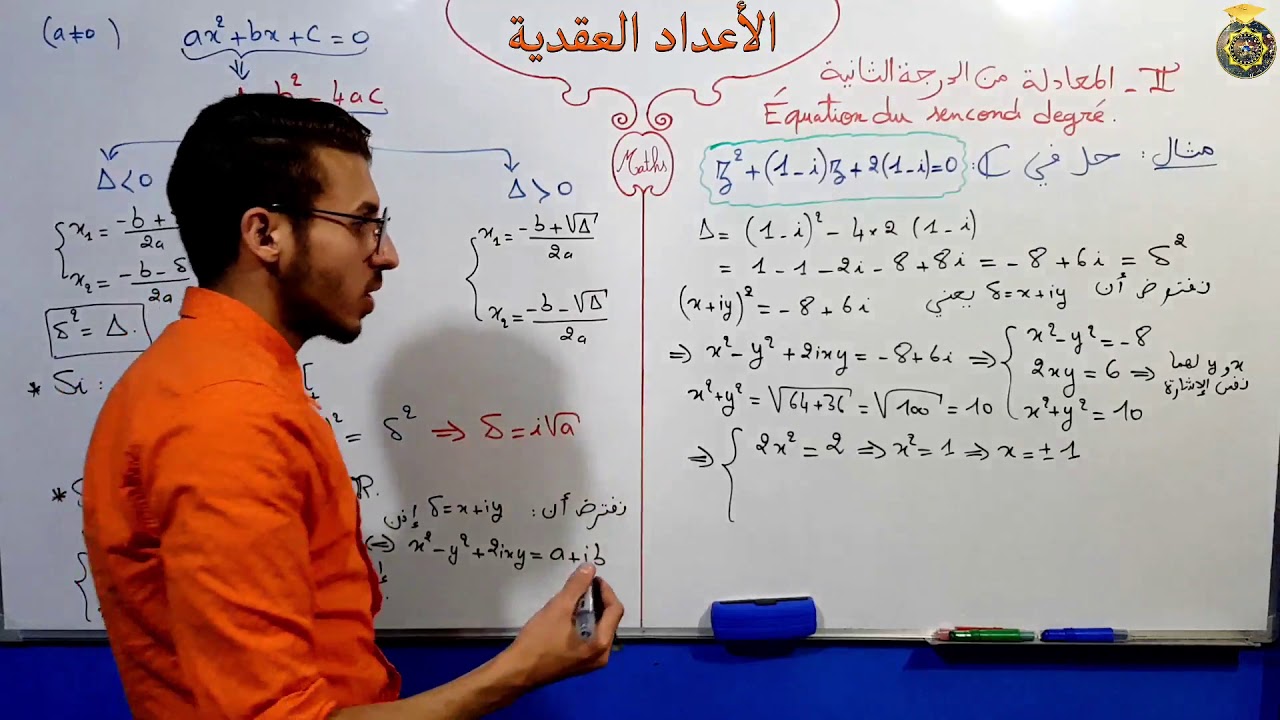 الأعداد العقدية
(a≠0)
ax²+bx+c=0
b²-4ac
Δ<0
Δ>0
x₁=-b+
2a
x₂=-b-δ
2a
x₁=-b+√Δ
2a
x₂=-b-√Δ
2a
δ²=Δ.
* Si :
= δ² ⇒ δ=i√a
ℝ.
نفترض أن: δ=x+iy إذن
x²-y²+2ixy=a+ib
Maths
II - المعادلة من الدرجة الثانية
Équation du sencond degré.
مثال: حل في ℂ: z²+(1-i)z+2(1-i)=0
Δ=(1-i)²-4×2(1-i)
=1-1-2i-8+8i=-8+6i=δ²
نفترض أن δ=x+iy يعني (x+iy)²=-8+6i
⇒ x²-y²+2ixy=-8+6i ⇒ { x²-y²=-8
2xy=6 ⇒ x و y لهما نفس الإشارة
x²+y²=√64+36=√100=10
x²+y²=10
⇒ { 2x²=2 ⇒ x²=1 ⇒ x=±1